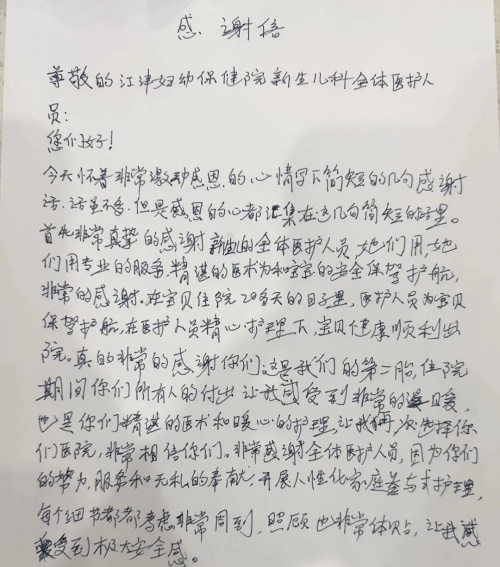 感谢信
尊敬的江津妇幼保健院新生儿科全体医护人
员：
您们好！
今天怀着非常激动感恩的心情写下简短的几句感谢
话，话虽不多，但是感恩的心都汇集在这几句简短的话里。
首先非常真挚的感谢新生儿的全体医护人员，她们用，她
们用专业的服务，精湛的医术为和宝宝的安全保驾护航，
非常的感谢。在宝贝住院20多天的日子里，医护人员为宝贝
保驾护航，在医护人员精心护理下，宝贝健康顺利出
院。真的非常的感谢你们。这是我们的第二胎，住院
期间你们所有人的付出让我感受到非常的温暖，
也是你们精湛的医术和暖心的护理，让我再次选择你
们医院，非常相信你们。非常感谢全体医护人员，因为你们
的努力，服务和无私的奉献，开展人性化家庭参与式护理，
每个细节都都考虑非常周到，照顾也非常体贴，让我感
受到极大安全感。